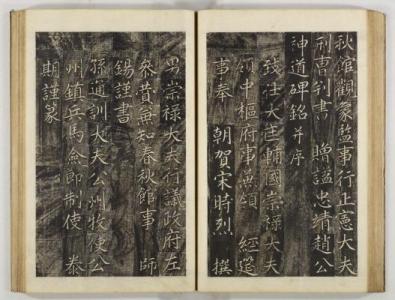 秋館觀象監事行正憲大夫
刑曹判書 贈謚忠靖趙公
神道碑銘并序
大匡輔國崇祿大夫
領中樞府事兼領 經筵
事奉 朝賀宋時烈 撰
男崇祿大夫行議政府左
參贊兼知春秋館事 師
錫謹書
孫通訓大夫公州牧使公
州鎮兵馬僉節制使 泰
期謹篆